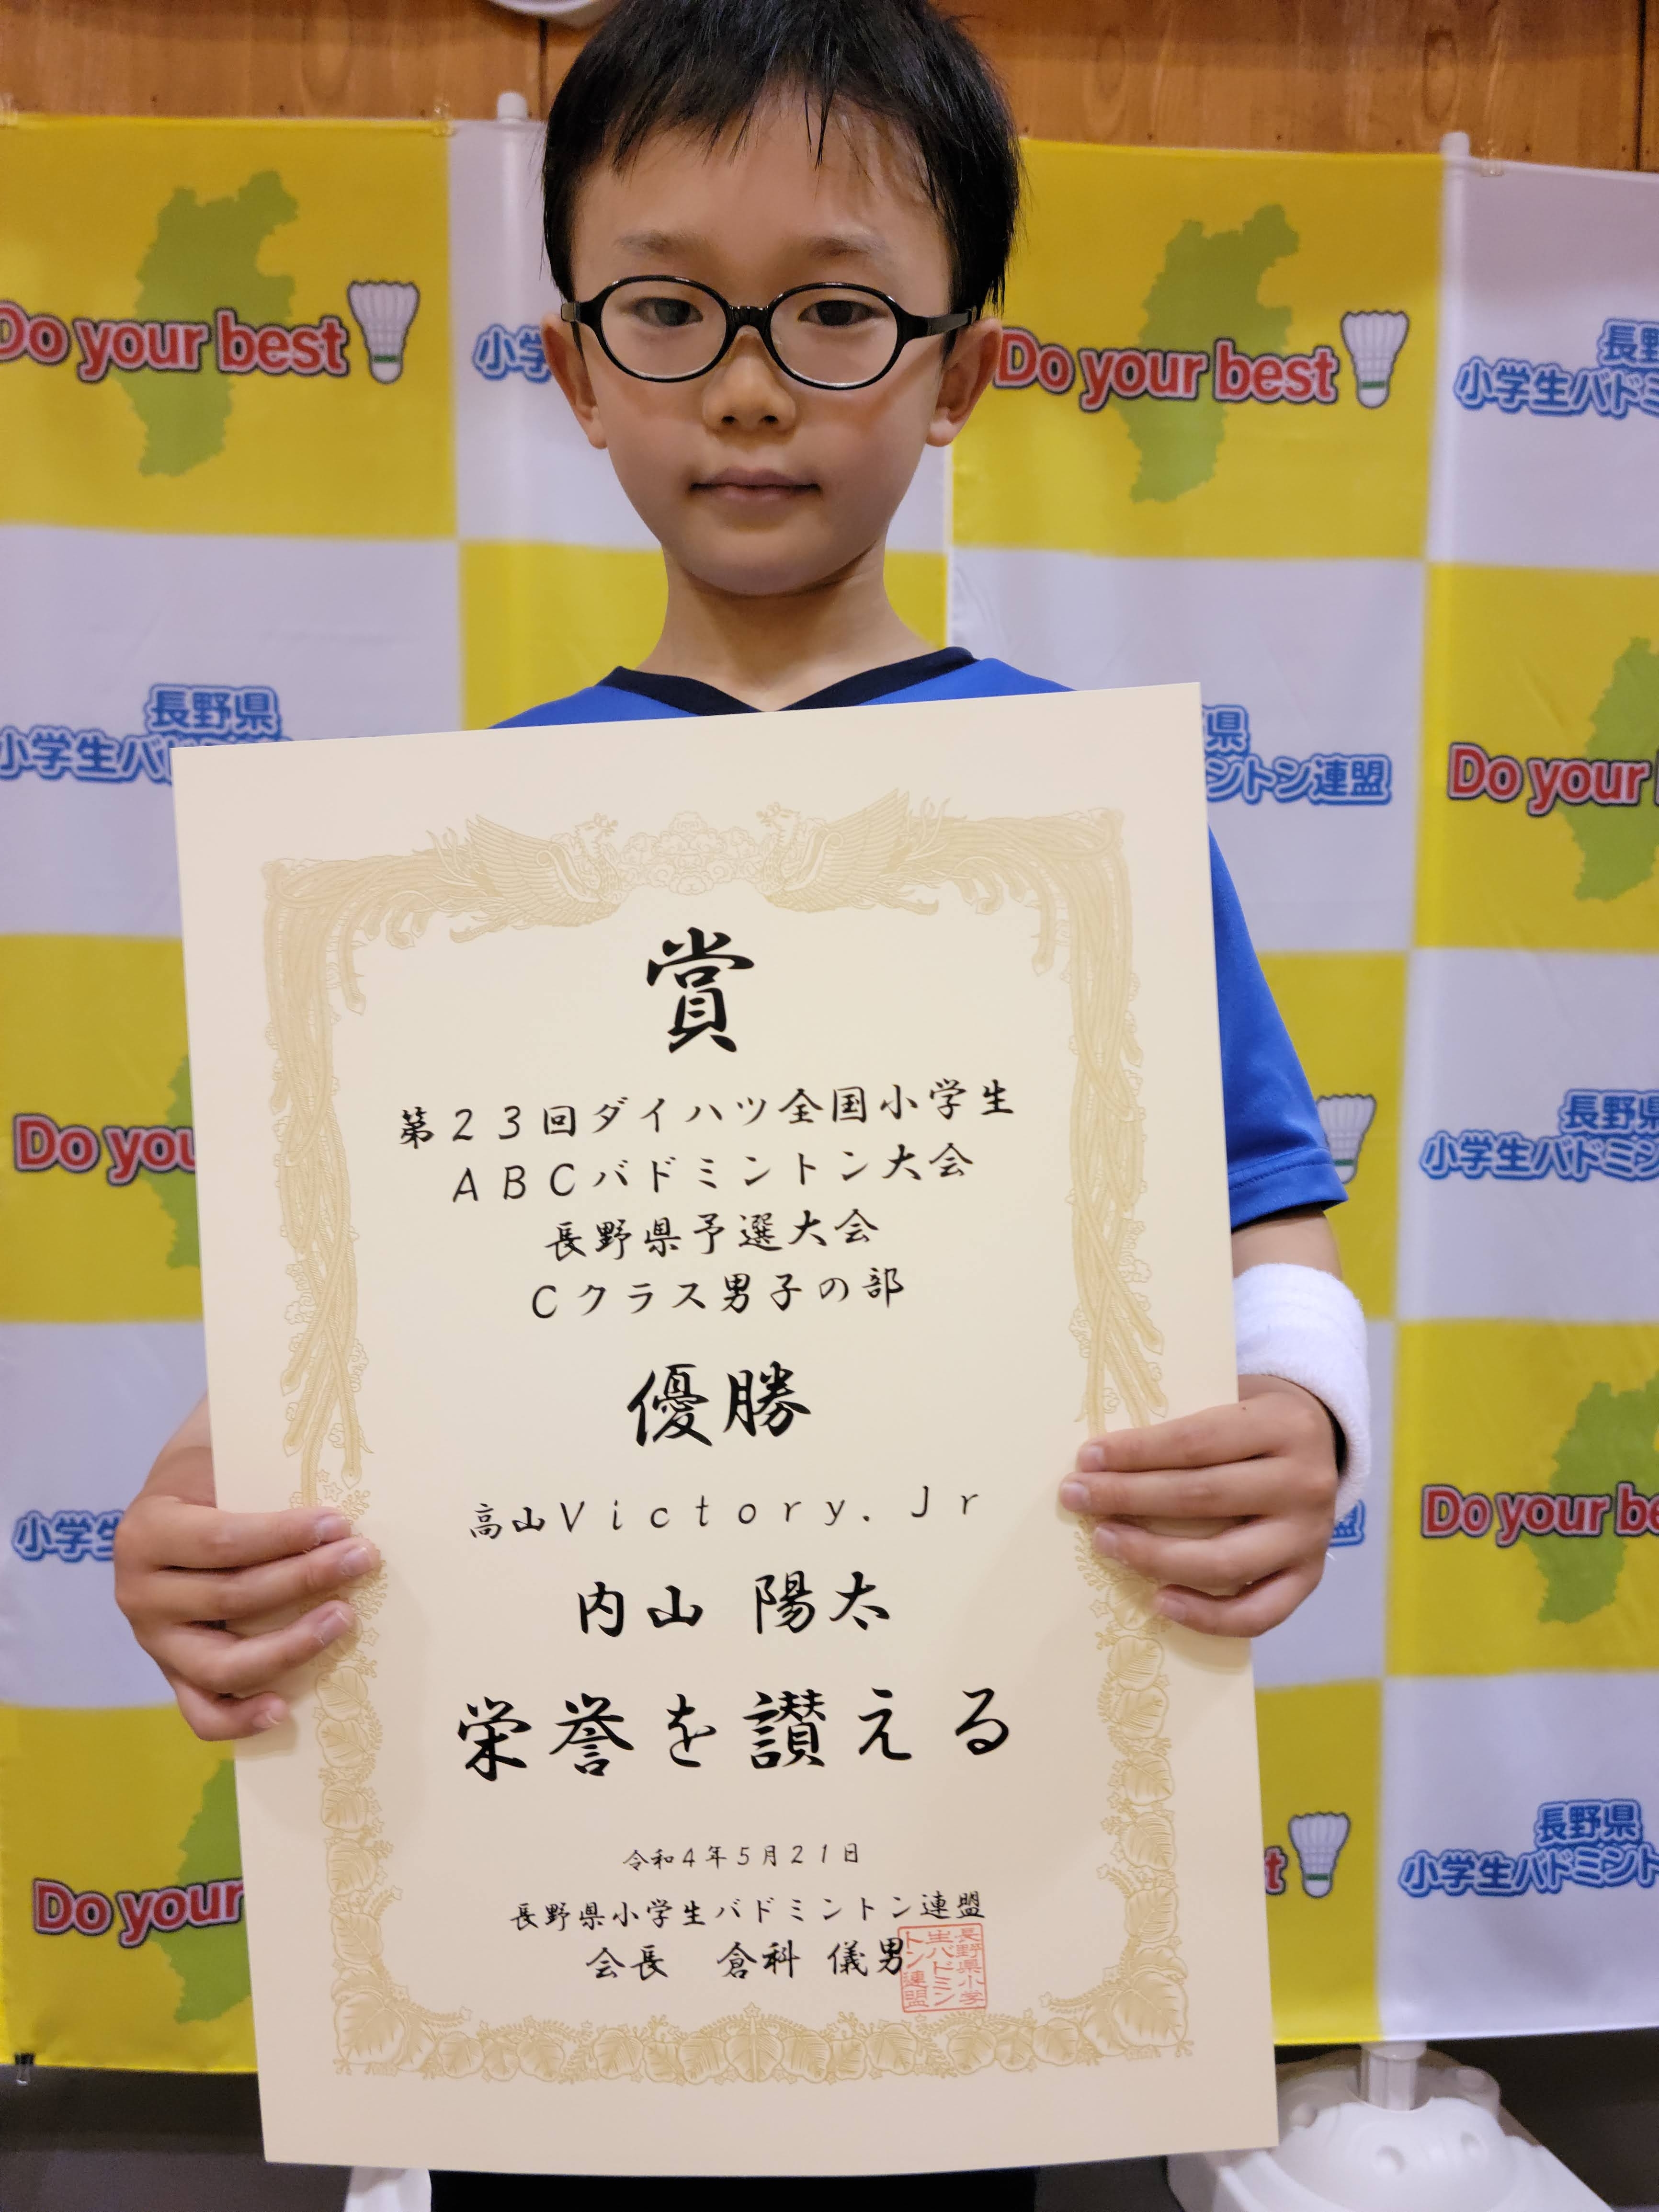 Do your best
小学
Do your best
長野
小学生バドミ
長野県
小学生バド
県
ントン連盟
Do your
賞
第23回ダイハツ全国小学生
ABCバドミントン大会
長野県予選大会
Cクラス男子の部
優勝
高山Victory.Jr
内山 陽太
栄誉を讃える
令和4年5月21日
長野県小学生バドミントン連盟
会長 倉科 儀男
長野県小学
生バドミン
トン連盟
Do you
長野県
小学生バドミン
小学生
盟
Do your be
Do your
t
長野県
小学生バドミント